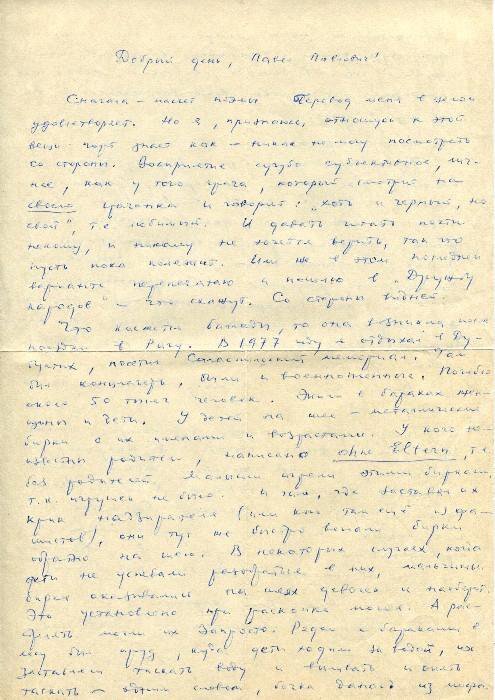 Добрый день, Павел Павлович!
Сначала – насчет поэмы. Перевод меня в целом
удовлетворяет. Но я, признаюсь, отношусь к этой
вещи чорт знает как – никак не могу посмотреть
со стороны. Восприятие сугубо субъективное, лич-
ное, как у того грача, который смотрит на
своего грачонка и говорит: "хоть и черный, но
свой", т.е. любимый. И давать читать почти
некому, и никому не хочется верить, так что
пусть пока полежит. Или же в этом
варианте перепечатаю и пошлю в "Дружбу
народов" – что скажут. Со стороны видней.
Что касается баллады, то она возникла после
поездки в Ригу. В 1977 году я отдыхал в Ду-
бултах, посетил Саласпилский мемориал. Там
был концлагерь, были и военнопленные. Погибло
около 50 тысяч человек. Жили в бараках жен-
щины и дети. У детей на шее – металлические
бирки с их именами и возрастами. У кого не-
известны родители, написано ohne Eltern, т.е.
без родителей. Малыши играли этими бирками,
т.к. игрушек не было. И там, где заставал их
крик надзирателя (или как там их из фа-
шистов), они тут же быстро вешали бирки
обратно на шею. В некоторых случаях, когда
дети не успевали разобраться в них, мальчишьи
бирки оказывались на шеях девочек и наоборот.
Это установлено при раскопках могил. А рас-
стрелять могли их запросто. Рядом с бараками в
лесу был пруд, куда дети ходили за водой, их
заставляли таскать воду и выливать и опять
таскать – одним словом, бочка данаид из мифа.